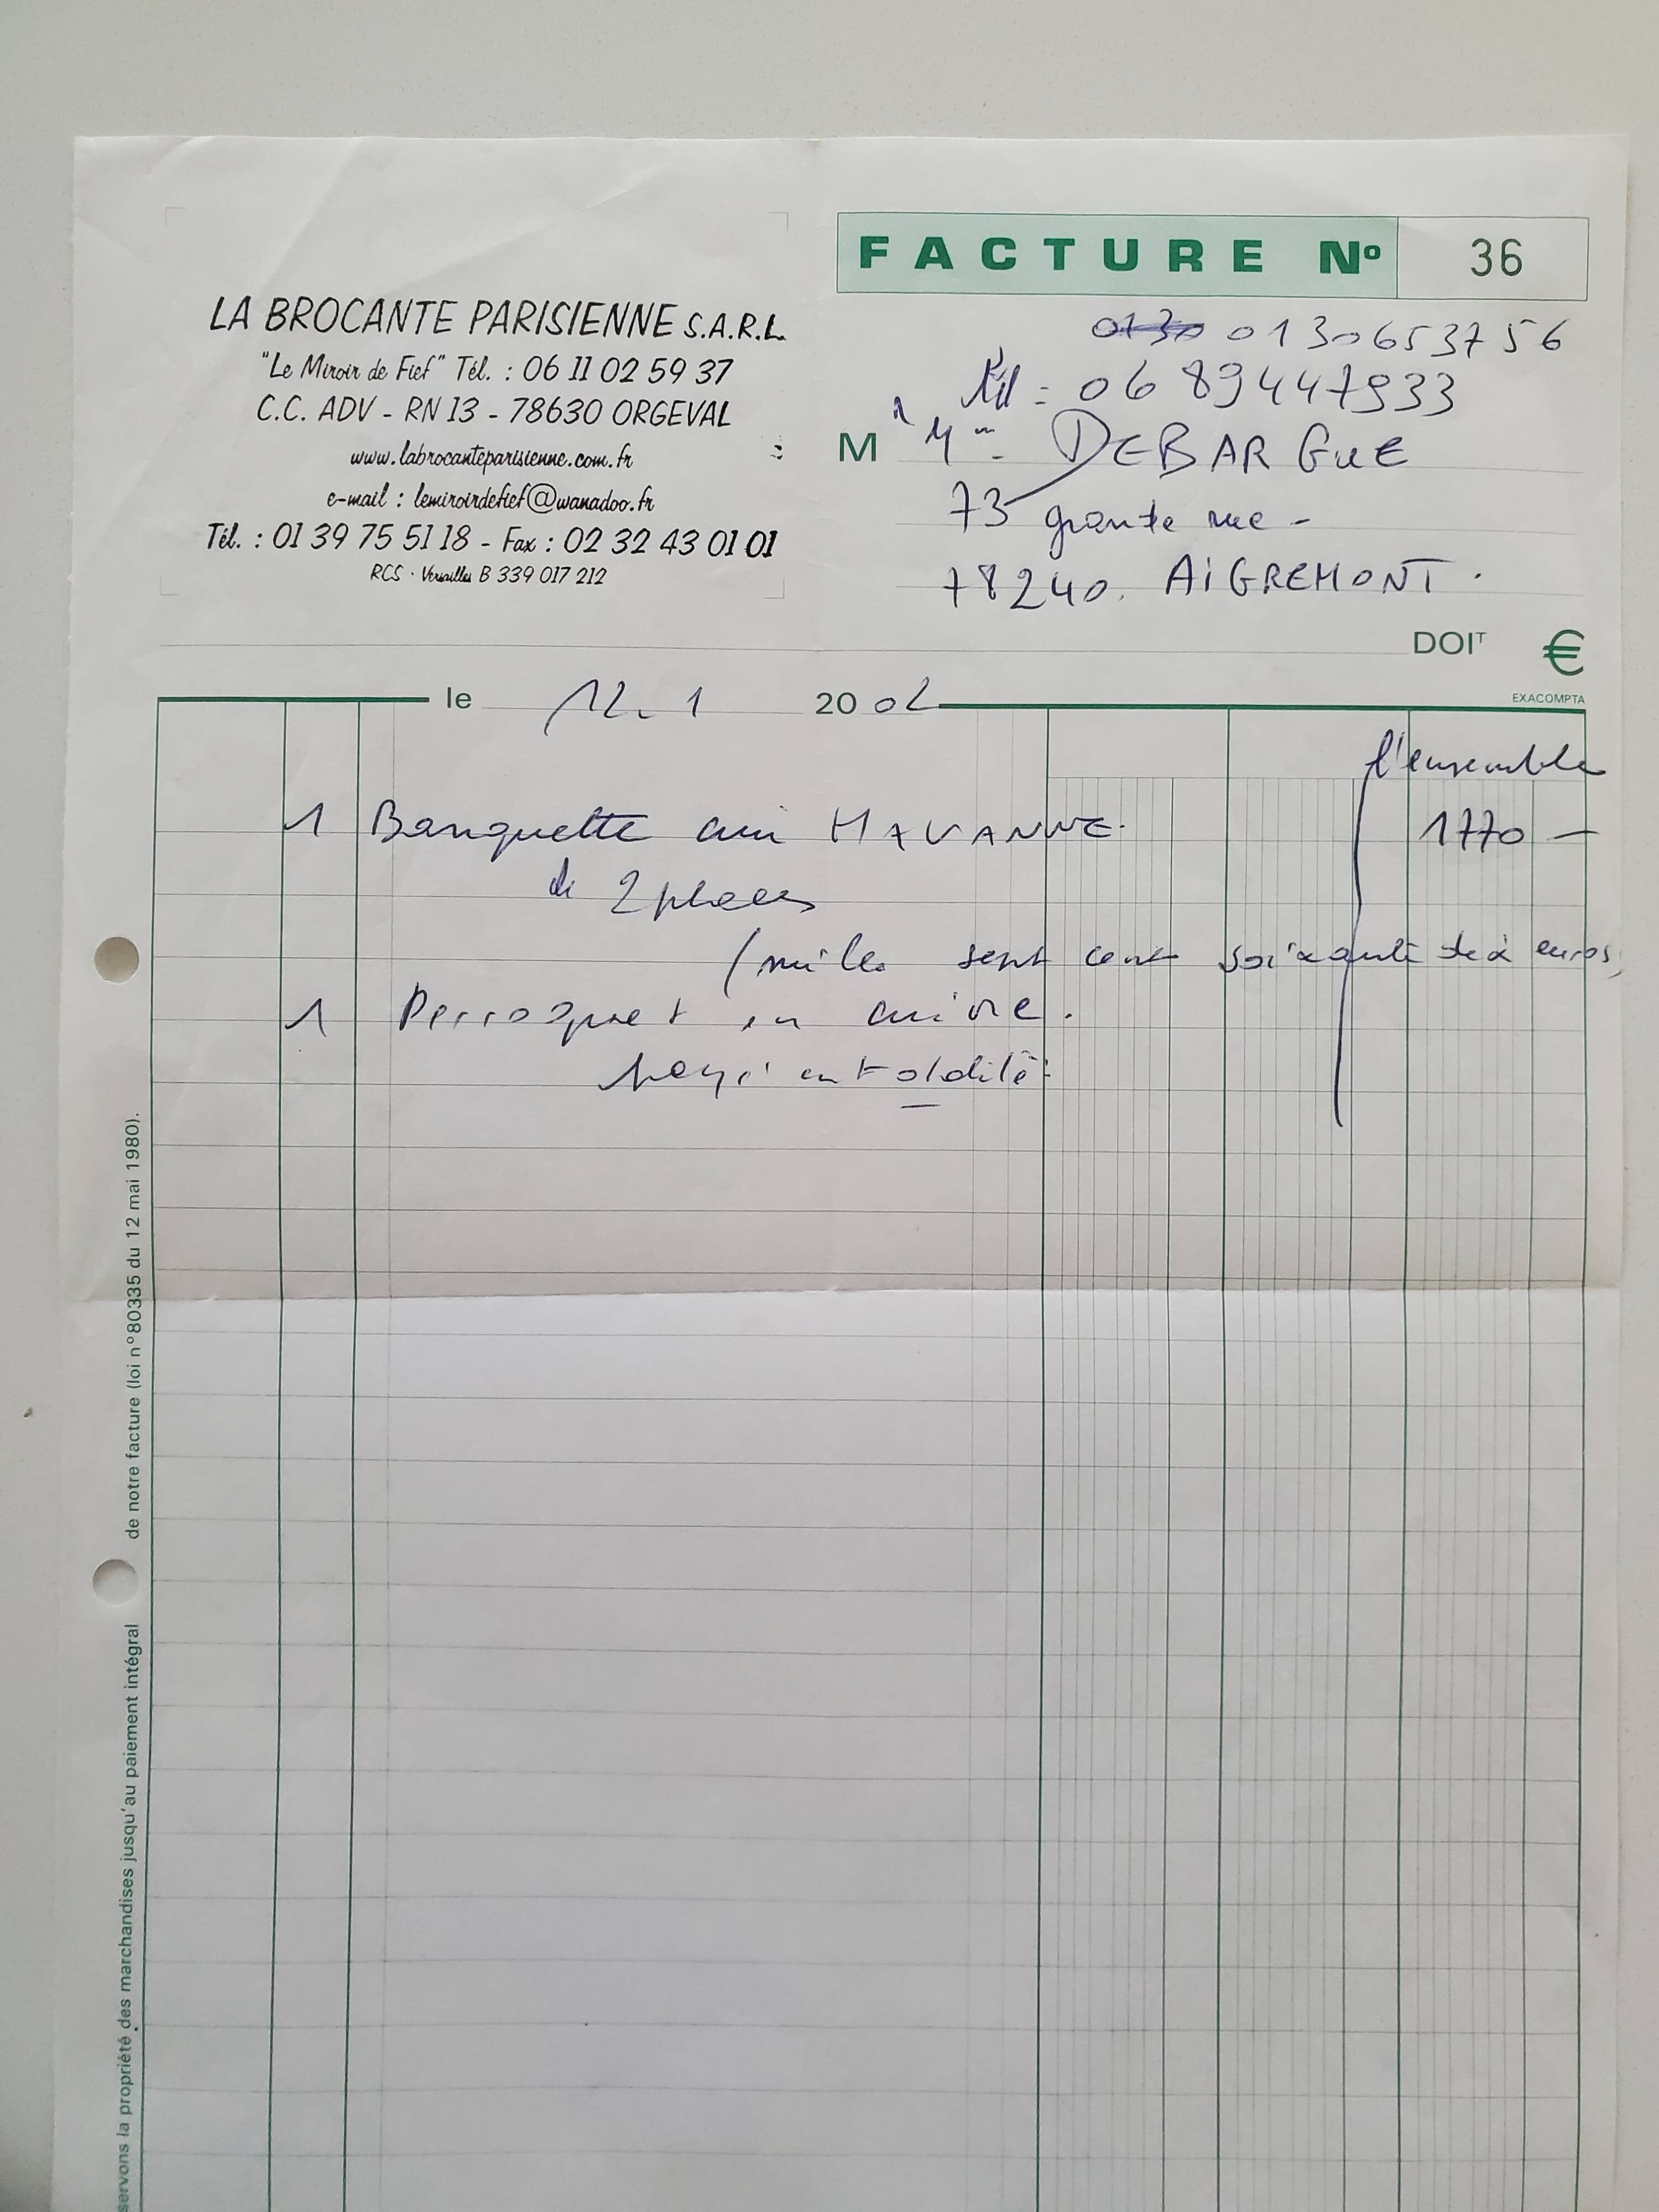 FACTURE Nº 36
LA BROCANTE PARISIENNE S.A.R.L.
"Le Miroir de Fief" Tél. : 06 11 02 59 37
C.C. ADV - RN 13 - 78630 ORGEVAL
www.labrocanteparisienne.com.fr
e-mail : lemiroirdefief@wanadoo.fr
Tél. : 01 39 75 51 18 - Fax : 02 32 43 01 01
RCS - Versailles B 339 017 212
0130 0130653756
Tél : 0689447933
M r Mme DEBARGUE
73 grande rue -
78240. AIGREMONT.
DOIT €
EXACOMPTA
le 12. 1 2002
l'ensemble
1 Banquette cuir HAVANNE. 1770 —
de 2 places
(mille sept cent soixante dix euros)
1 Perroquet en cuivre.
payé en totalité
servons la propriété des marchandises jusqu'au paiement intégral de notre facture (loi n°80335 du 12 mai 1980).